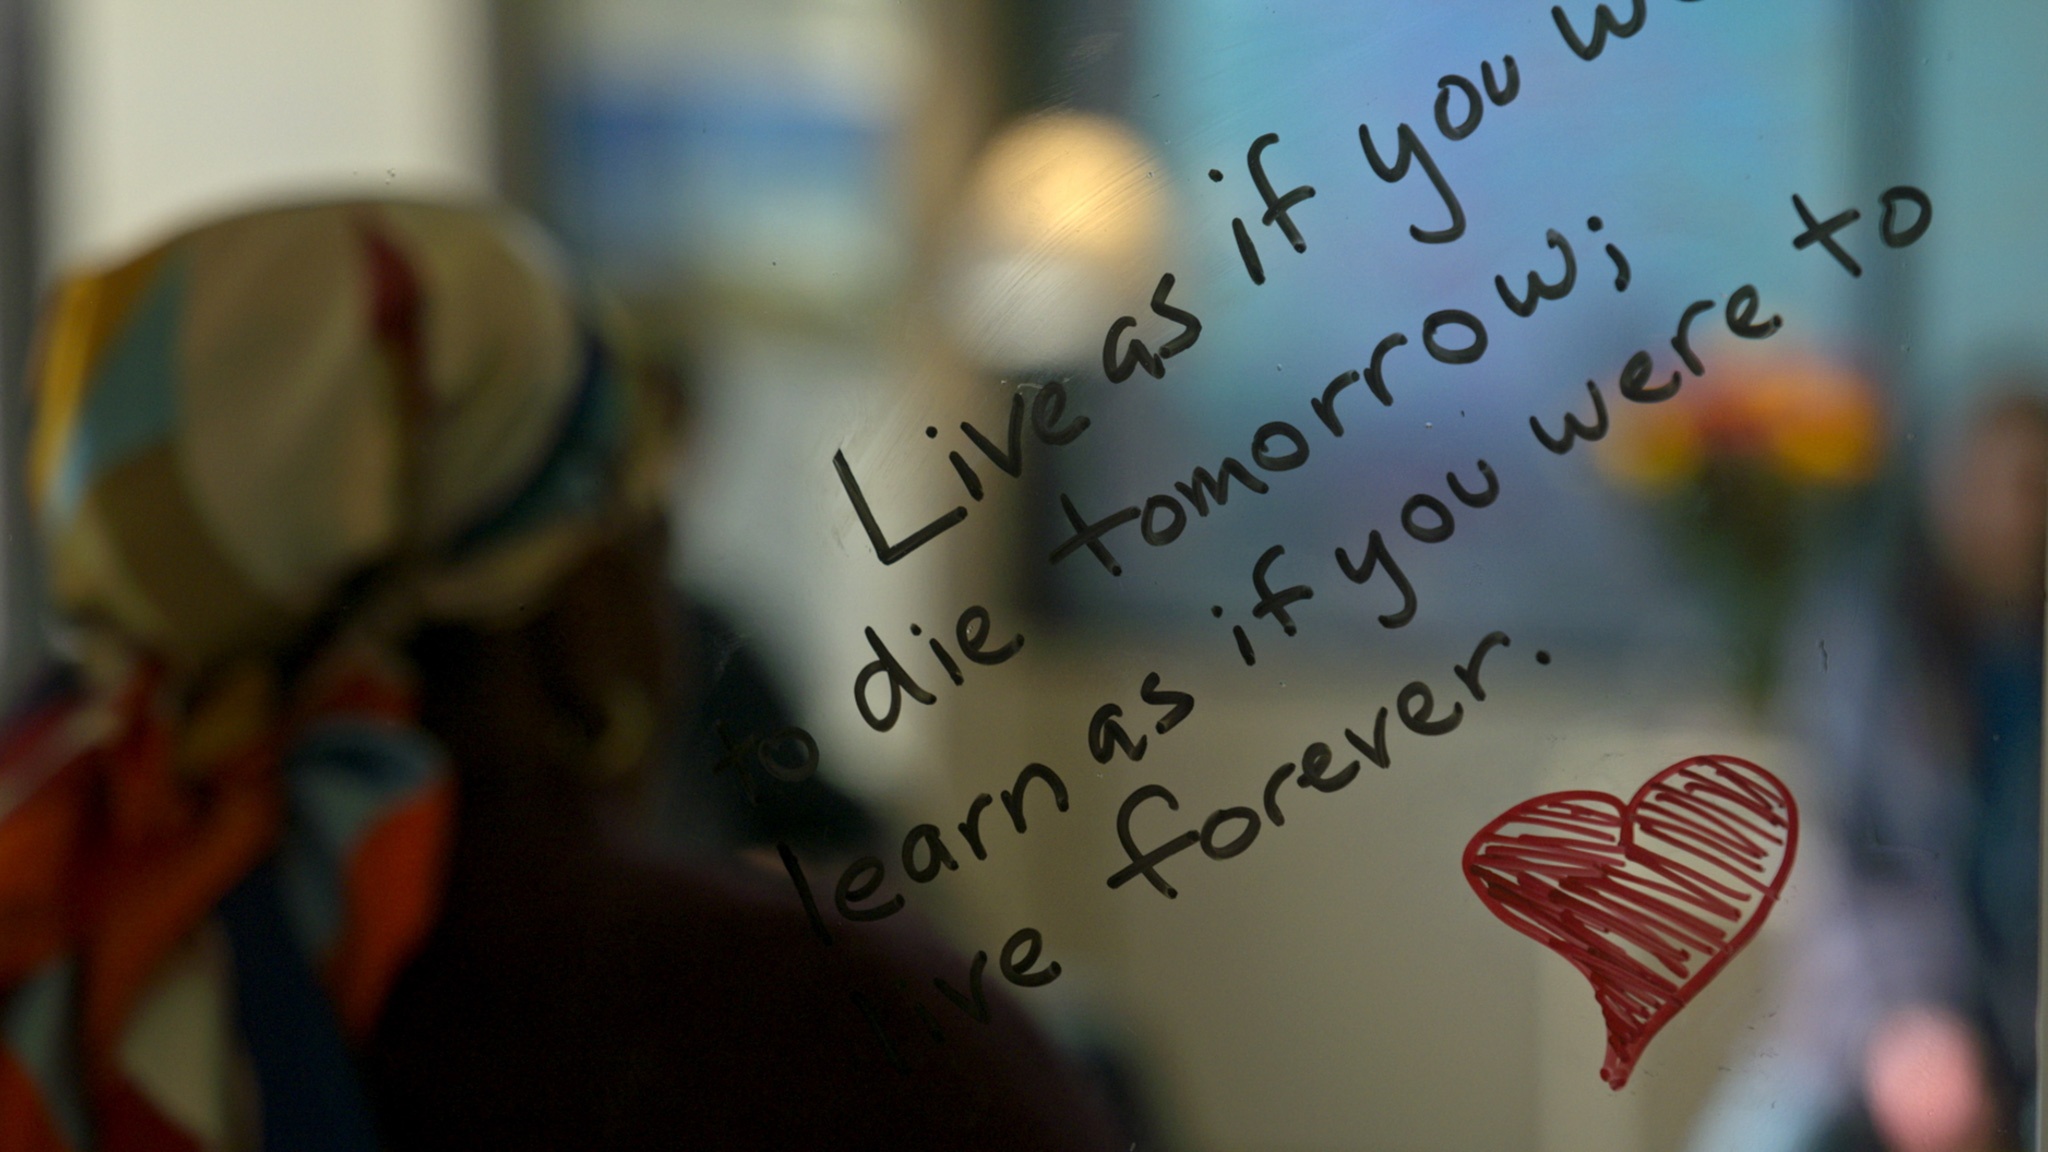 Live as if you
to die tomorrow;
learn as if you were to
live forever.